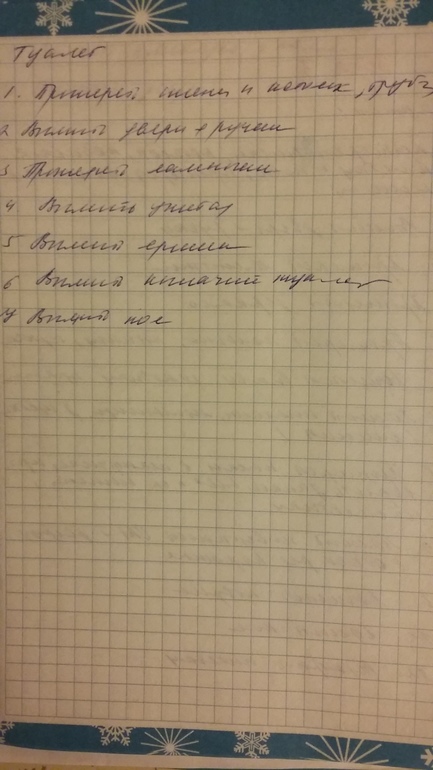 Туалет
1. Протереть стены и потолок, трубы
2 Вымыть двери + ручки
3 Протереть лампочки
4 Вымыть унитаз
5 Вымыть ершик
6 Вымыть кошачий туалет
7 Вымыть пол